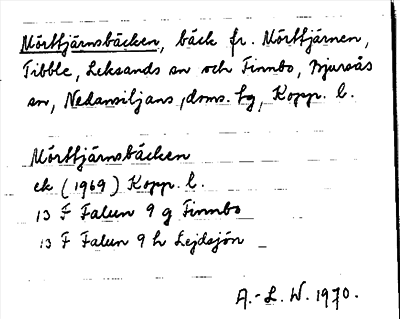 Mörttjärnsbäcken, bäck fr. Mörttjärnen,
Tibble, Leksands sn och Finnbo, Bjursås
sn, Nedansiljans doms. tg, Kopp. l.
Mörttjärnsbäcken
ek (1969) Kopp. l.
13 F Falun 9 g Finnbo
13 F Falun 9 h Lejdsjön
A.-L. W. 1970.